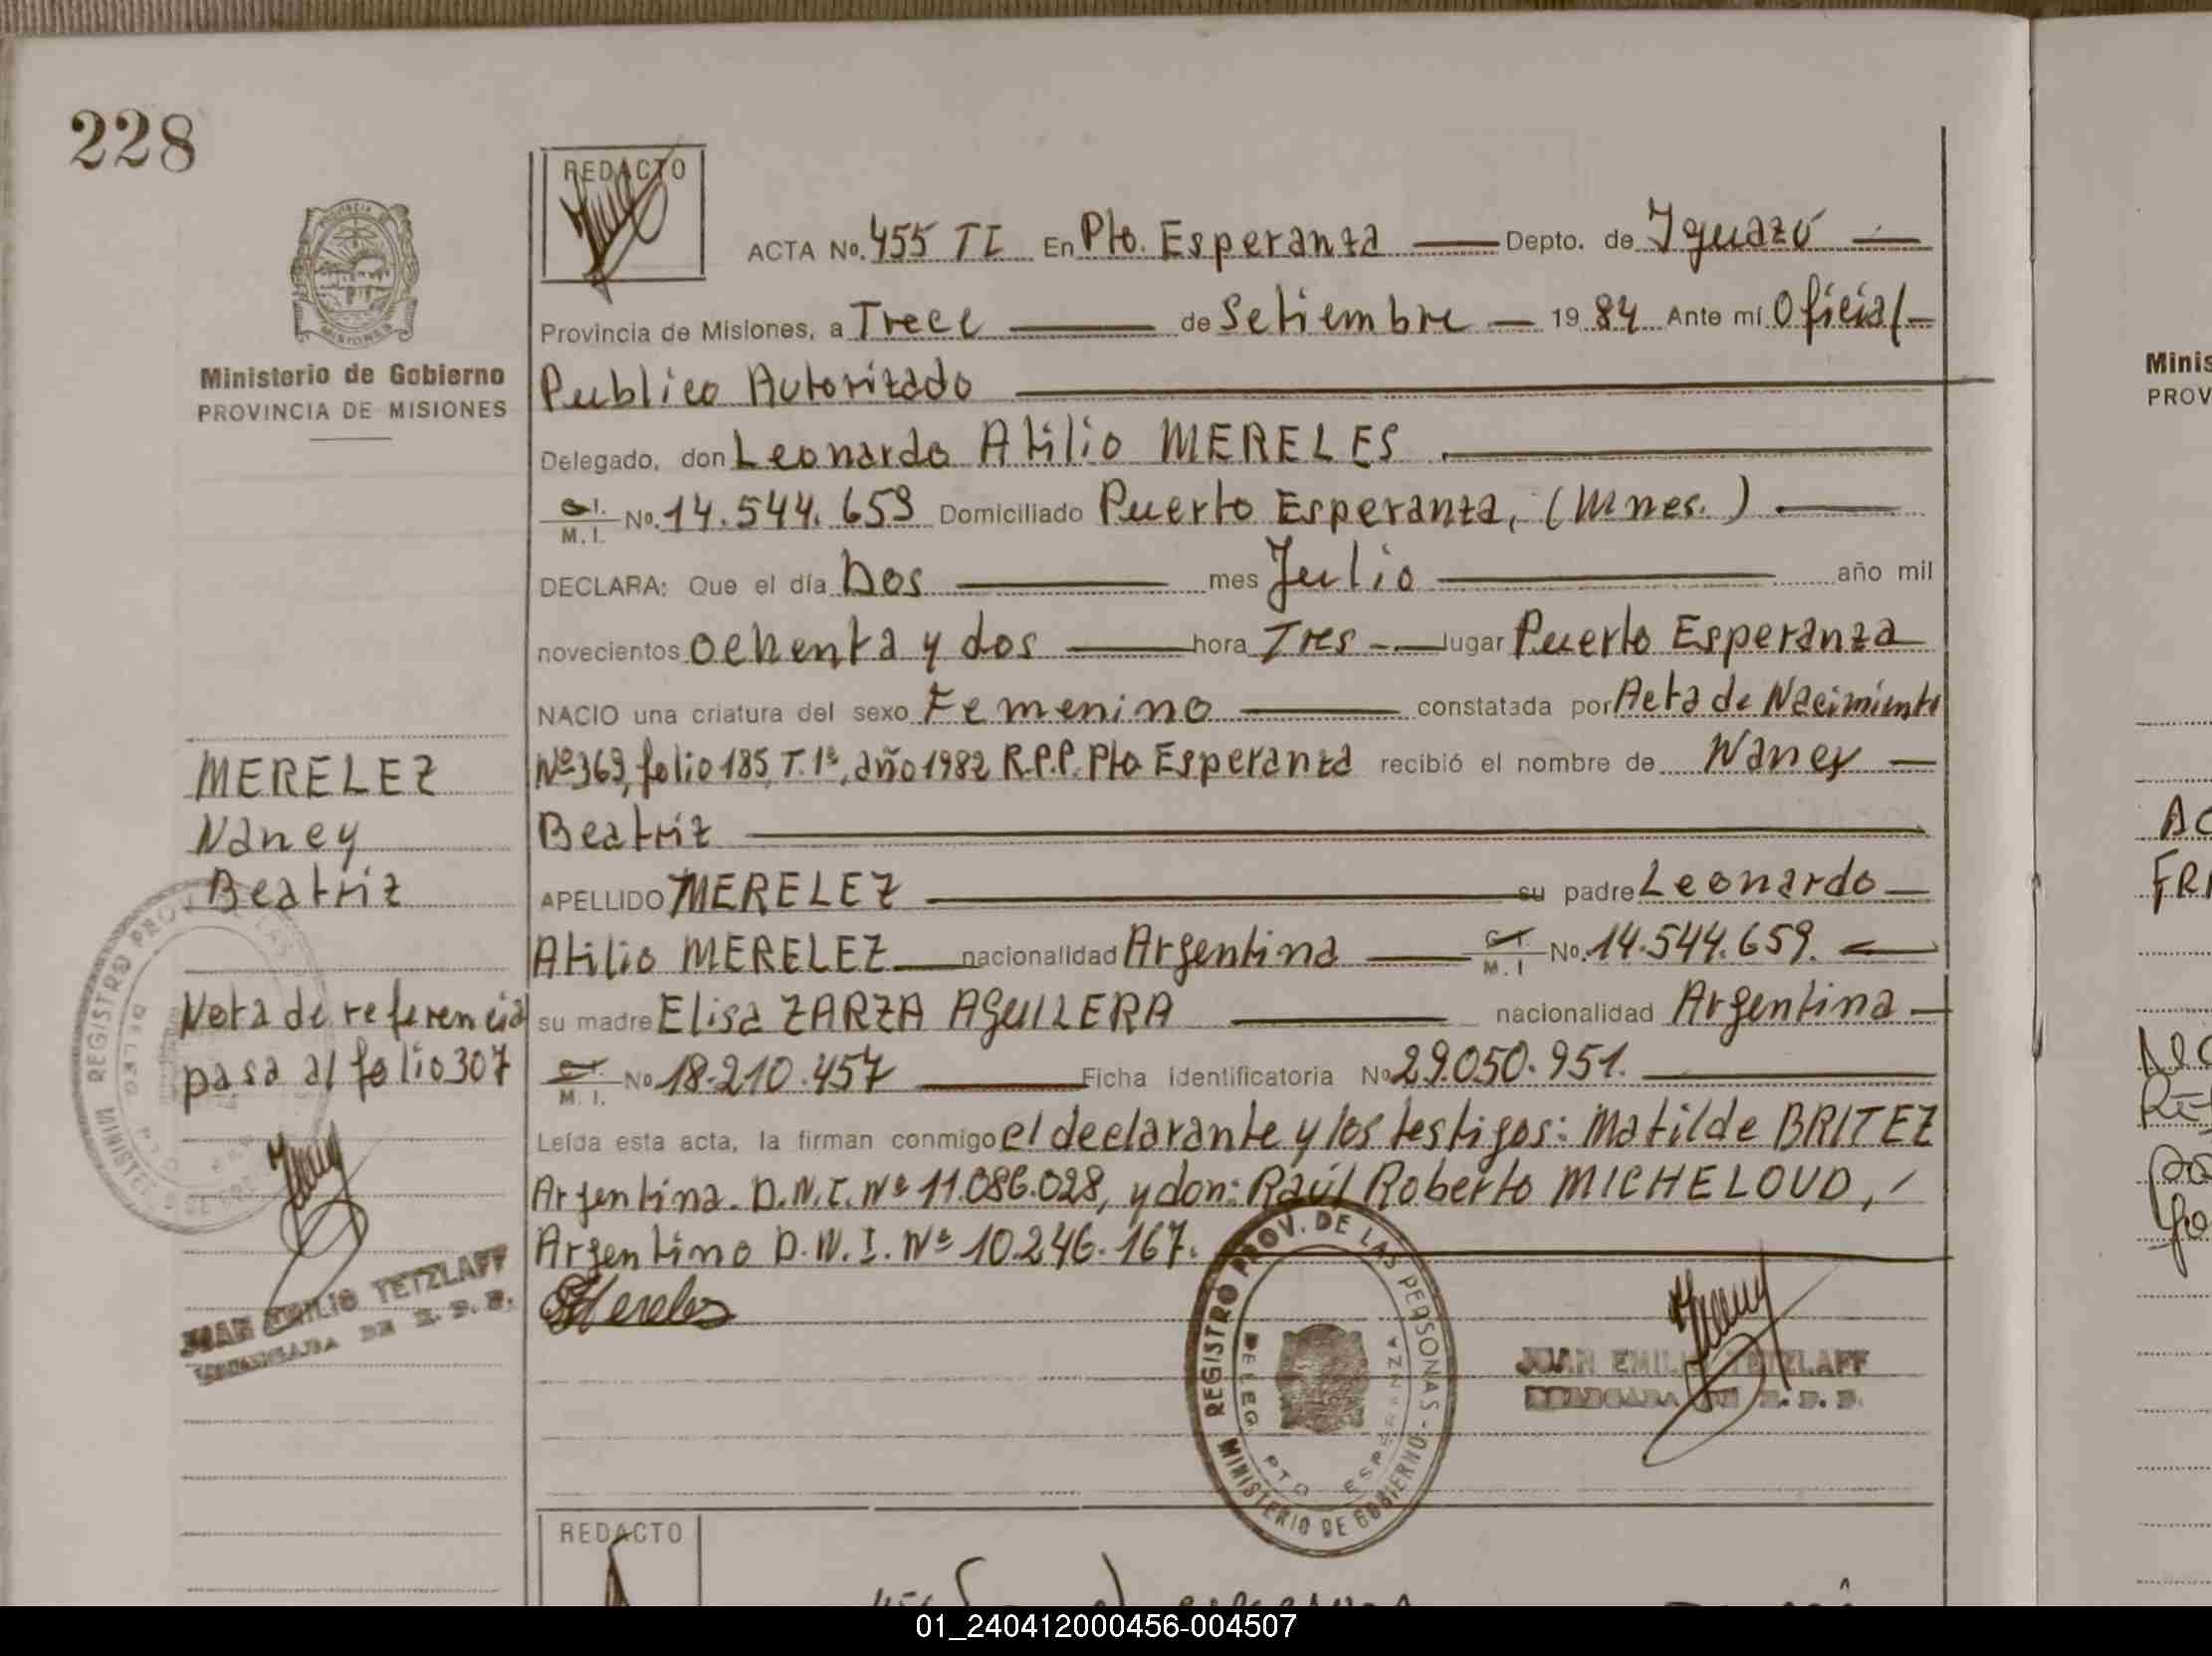 228
REDACTO
PROVINCIA DE
MISIONES
Ministerio de Gobierno
PROVINCIA DE MISIONES
ACTA No. 455 TI En Pto. Esperanza Depto. de Iguazú
Provincia de Misiones, a Trece de Setiembre 1984 Ante mí Oficial
Publico Autorizado
Delegado, don Leonardo Atilio MERELES
C.I. M.I. No. 14.544.659 Domiciliado Puerto Esperanza, (Mnes.)
DECLARA: Que el día Dos mes Julio año mil
novecientos ochenta y dos hora Tres lugar Puerto Esperanza
NACIO una criatura del sexo Femenino constatada por Acta de Nacimiento
Nº 369, folio 185, T. 1º, año 1982 R.P.P. Pto Esperanza recibió el nombre de Nancy
Beatriz
APELLIDO MERELEZ su padre Leonardo
Atilio MERELEZ nacionalidad Argentina C.I. M.I No. 14.544.659.
su madre Elisa ZARZA AGUILERA nacionalidad Argentina
C.I. M.I. No 18.210.457 Ficha identificatoria No 29.050.951.
Leída esta acta, la firman conmigo el declarante y los testigos: Matilde BRITEZ
Argentina. D.N.I. Nº 11.086.028, y don: Raúl Roberto MICHELOUD,
Argentino D.N.I. Nº 10.246.167.
Mereles
MERELEZ
Nancy
Beatriz
Nota de referencia
pasa al folio 307
JUAN EMILIO TETZLAFF
REGISTRO PROV. DE LAS PERSONAS - MINISTERIO DE GOBIERNO
DELEG. PTO ESPERANZA
JUAN EMILIO TETZLAFF
REDACTO
Minis
PROV
AC
FRA
01_240412000456-004507